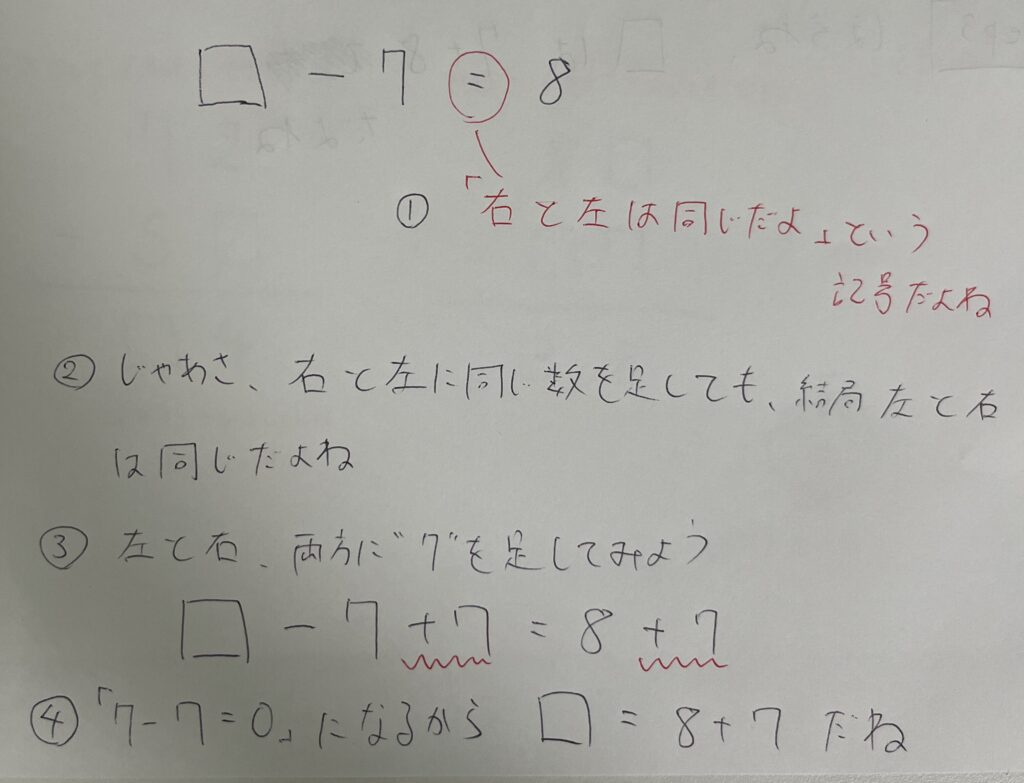 □ - 7 = 8
① 「右と左は同じだよ」という
記号だよね
② じゃあさ、右と左に同じ数を足しても、結局 左と右
は同じだよね
③ 左と右、両方に"7"を足してみよう
□ - 7 + 7 = 8 + 7
④ 「7-7=0」になるから □ = 8+7 だね